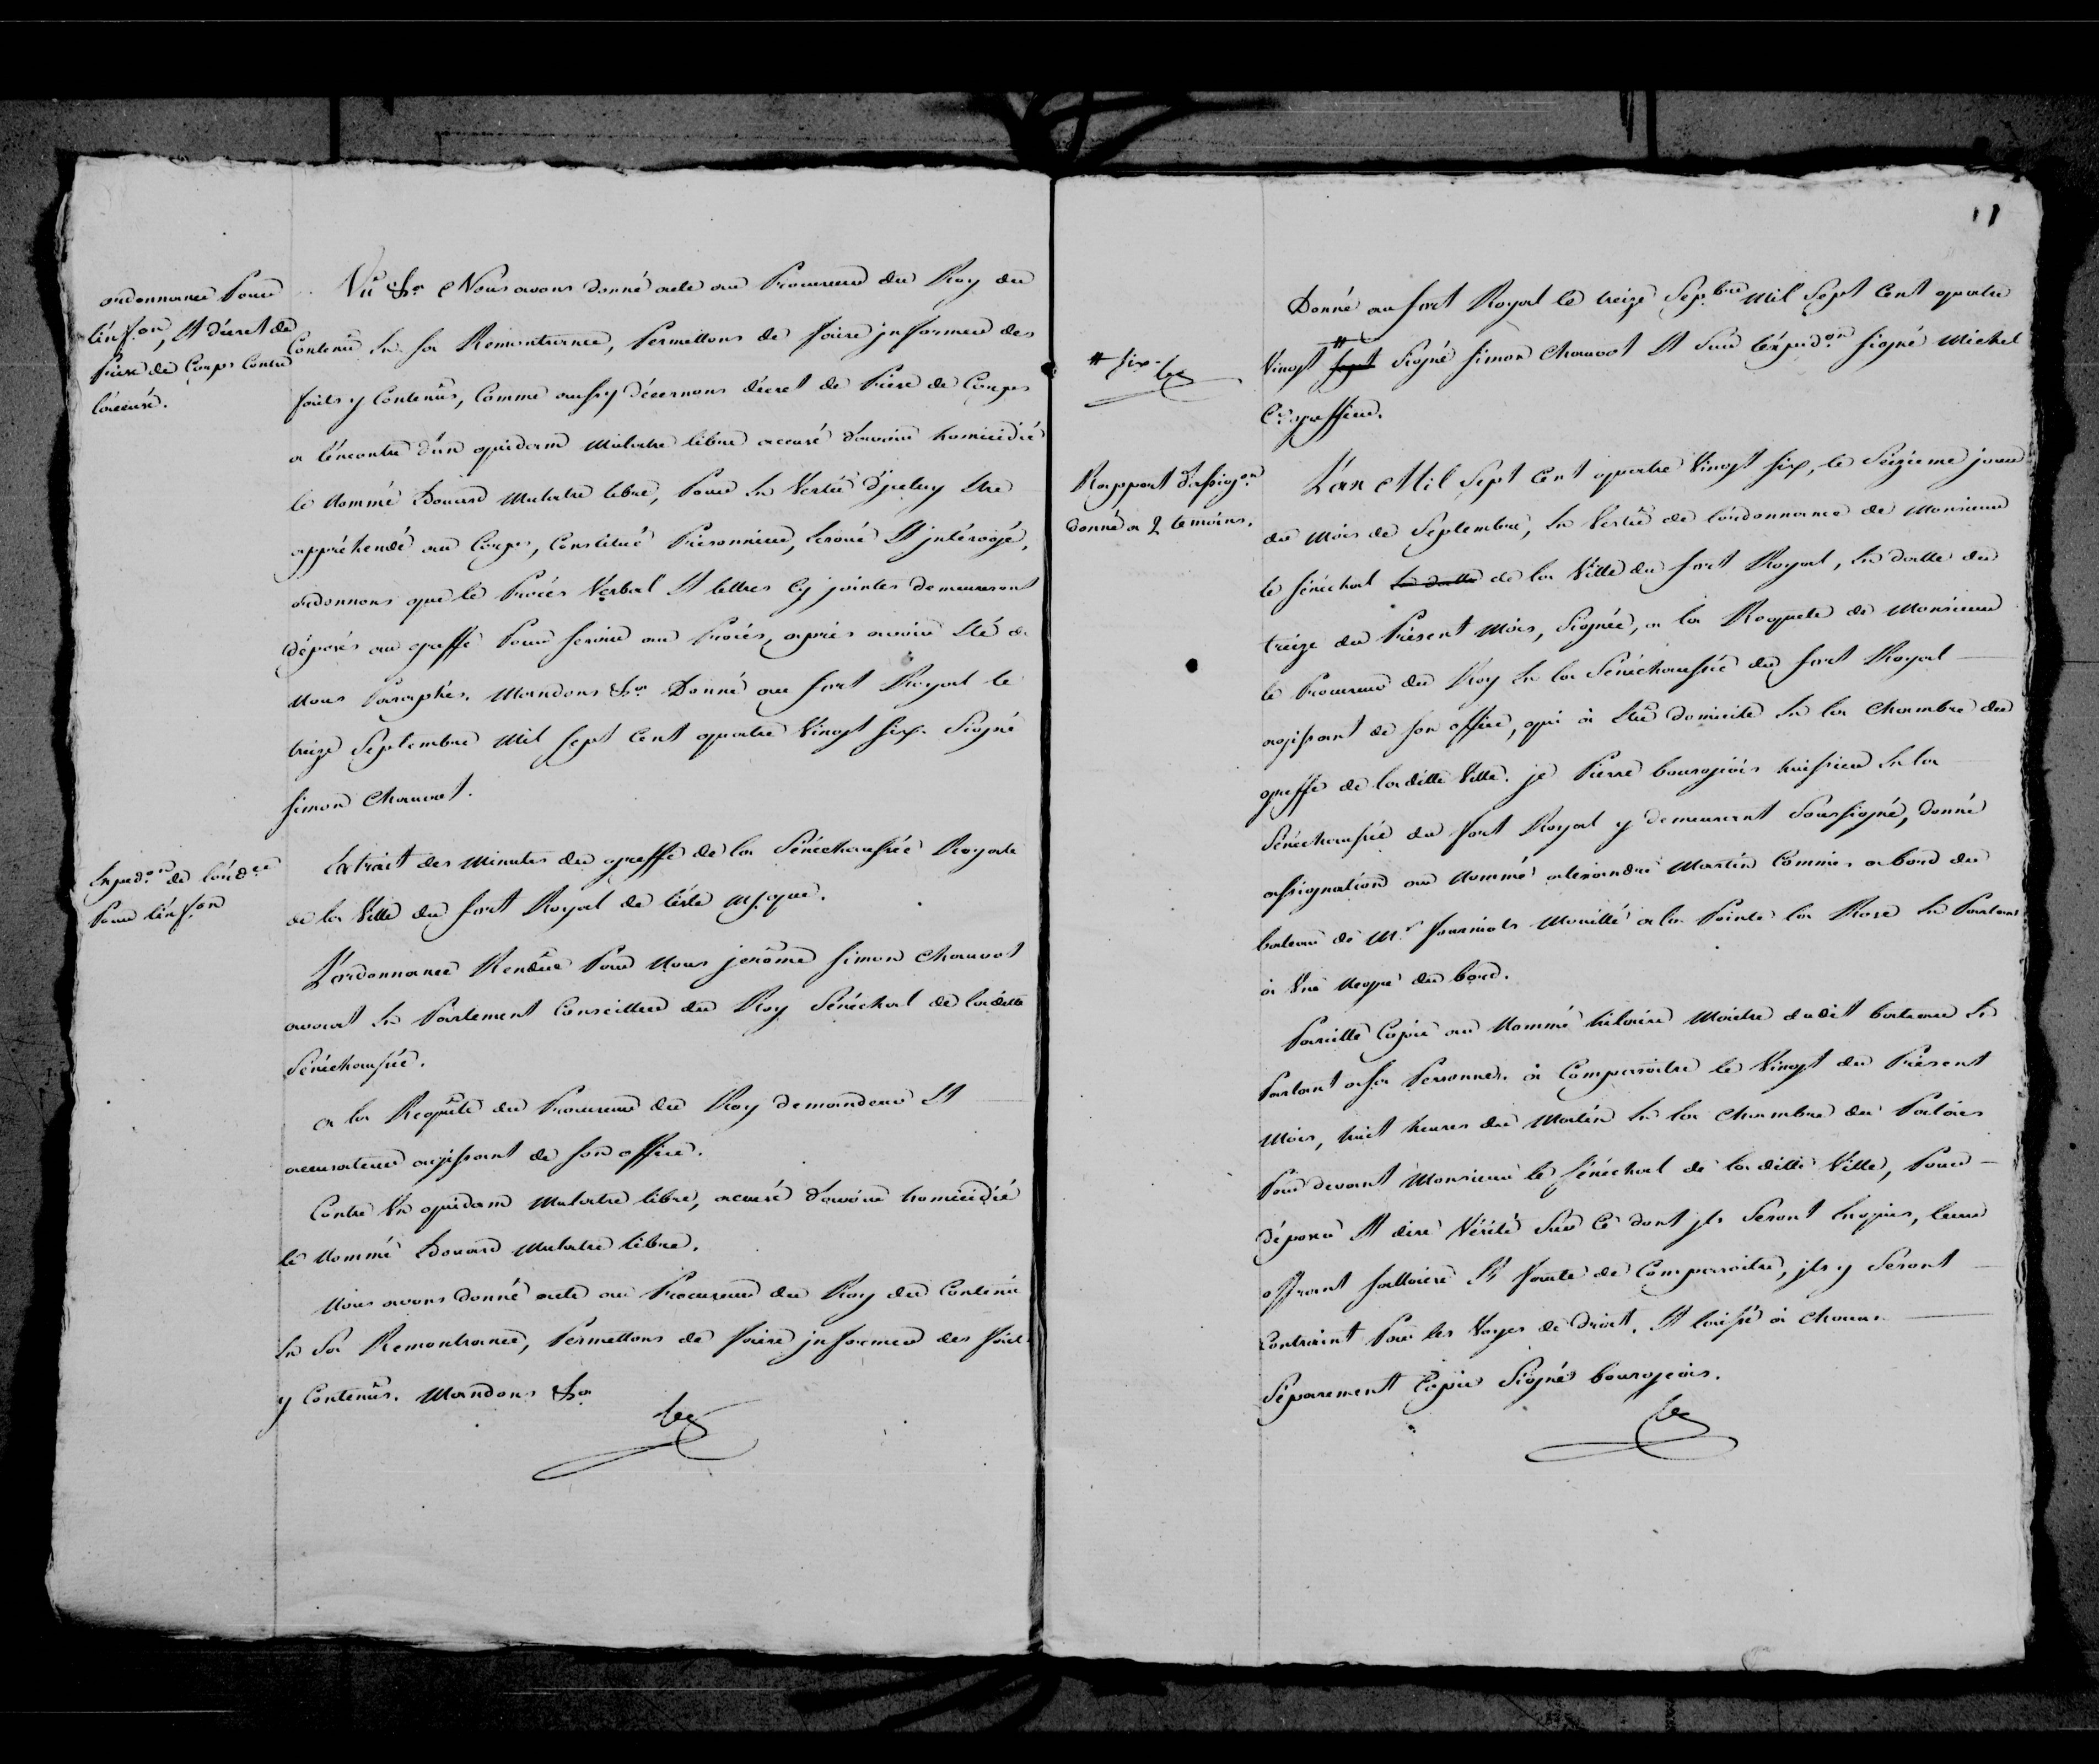 ordonnance Pour
l'inf.on, Et décret de
Prise de Corps Contre
l'accusé.
Vû &a Nous avons donné acte au Procureur du Roy du
Contenû En sa Remontrance, Permettons de faire jnformer des
faits y Contenûs, Comme aussy décernons décret de Prise de Corps
a l'éncontre d'un quidam Mulatre libre accusé d'avoir homicidié
le Nommé Edouard Mulatre libre, Pour En Vertû d'jceluy Etre
appréhendé au Corps, Constitué Prisonnier, Ecroué Et jntérogé,
ordonnons que le Procès Verbal Et lettres Cy jointes demeureront
déposés au greffe Pour servir au Procès, après avoir Eté de
Nous Paraphés. Mandons &a Donné au fort Royal le
treize Septembre Mil sept Cent quatre Vingt six. Signé
Simon Chauvot.
Expéd.on de l'ord.ce
Pour l'inf.on
Extrait des Minutes du greffe de la Sénéchaussée Royale
de la Ville du fort Royal de l'isle M.que.
L'ordonnance Rendûe Par Nous jerôme Simon Chauvot
avocat En Parlement Conseiller du Roy Sénéchal de ladette
Sénéchaussée.
a la Reqûete du Procureur du Roy demandeur Et
accusateur agissant de son office.
Contre Un quidam Mulatre libre, accusé d'avoir homicidié
le Nommé Edouard Mulatre libre.
Nous avons donné acte au Procureur du Roy du Contenû
En Sa Remontrance, Permettons de faire jnformer des faits
y Contenûs. Mandons &a
11
Donné au fort Royal le treize Sep.bre Mil Sept Cent quatre
# six.
Vingt # sept Signé Simon Chauvot Et Sur l'éxpéd.on signé Michel
C. greffier.
Rapport d'assig.on
donné a 2 temoins.
L'an Mil Sept Cent quatre Vingt six, le Seizieme jour
du Mois de Septembre, En Vertû de l'ordonnance de Monsieur
le sénéchal En datte de la Ville du fort Royal, En datte du
treize du Présent Mois, Signée, a la Requete de Monsieur
le Procureur du Roy En la Sénéchaussée du fort Royal
agissant de son office, qui à Elû domicile En la Chambre du
greffe de laditte Ville. je Pierre bourgeois huissier En la
Sénéchaussée du fort Royal y demeurant Soussigné, donné
assignation au Nommé aléxandre Martin Commis abord du
bateau de M.r fourniols Mouillé a la Pointe la Rose En Parlant
à Une Negre du bord.
Pareille Copie au Nommé hilaire Maitre dudit bateau En
Parlant asa Personne. à Comparoitre le Vingt du Présent
Mois, huit heures du Matin En la Chambre du Palais
Par devant Monsieur le sénéchal de la ditte Ville, Pour
déposer Et dire Vérité Sur Ce dont jls Seront Enquis, leur
offrant sallaire Et faute de Comparoitre, jls y Seront
Contraint Par les Voyes de droit, Et laissé à Chacun
Séparement Copie Signé bourgeois.